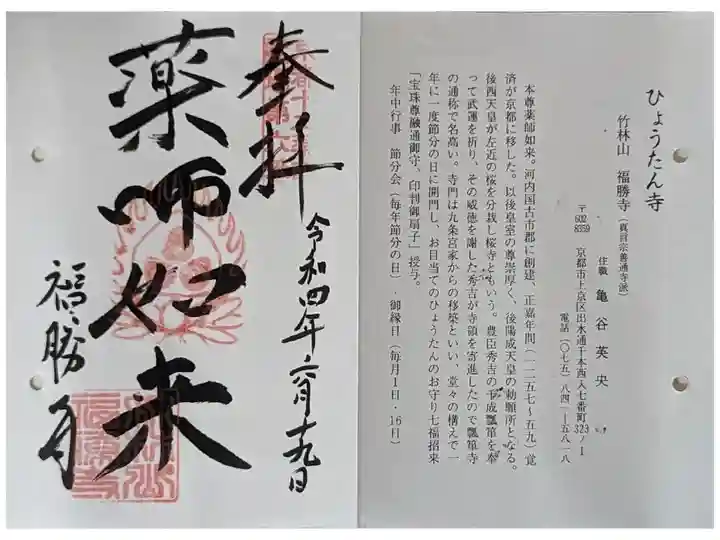 ひょうたん寺
竹林山　福勝寺（真言宗善通寺派）
住職　亀谷英央
〒602-8359　京都市上京区出水通千本西入七番町323ノ1
電話（〇七五）八四一ー五八一八
本尊薬師如来。河内国古市郡に創建、正嘉年間（一二五七～五九）覚
済が京都に移した。以後皇室の尊崇厚く、後陽成天皇の勅願所となる。
後西天皇が左近の桜を分栽し桜寺ともいう。豊臣秀吉の千成瓢箪を奉
って武運を祈り、その威徳を謝した秀吉が寺領を寄進したので瓢箪寺
の通称で名高い。寺門は九条宮家からの移築といい、堂々の構えで一
年に一度節分の日に開門し、お目当てのひょうたんのお守り七福招来
「宝珠尊融通御守、印判御扇子」授与。
年中行事　節分会（毎年節分の日）・御縁日（毎月1日・16日）
奉拝
令和四年六月十九日
薬师如来
福勝寺